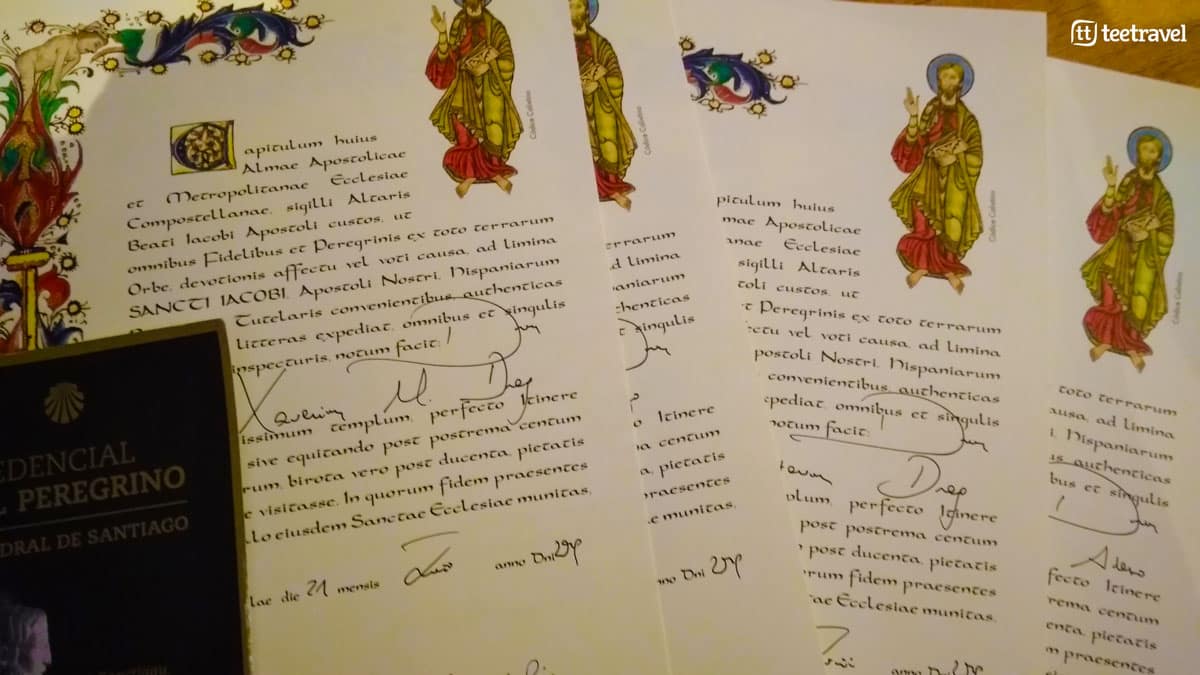 teetravel
Capitulum huius
Almae Apostolicae
et Metropolitanae Ecclesiae
Compostellanae, sigilli Altaris
Beati Iacobi Apostoli custos, ut
omnibus Fidelibus et Peregrinis ex toto terrarum
Orbe, devotionis affectu vel voti causa, ad limina
SANCTI IACOBI, Apostoli Nostri, Hispaniarum
Tutelaris convenientibus, authenticas
litteras expediat, omnibus et singulis
inspecturis, notum facit:
issimum templum, perfecto Itinere
sive equitando post postrema centum
rum, birota vero post ducenta, pietatis
e visitasse. In quorum fidem praesentes
lo eiusdem Sanctae Ecclesiae munitas,
lae die 21 mensis anno Dni
Codice Calixtino
EDENCIAL
L PEREGRINO
DRAL DE SANTIAGO
Codice Calixtino
errarum
d limina
aniarum
henticas
t singulis
o Itinere
a centum
a, pietatis
raesentes
e munitas,
no Dni
Codice Calixtino
pitulum huius
mae Apostolicae
anae Ecclesiae
sigilli Altaris
toli custos, ut
t Peregrinis ex toto terrarum
ctu vel voti causa, ad limina
postoli Nostri, Hispaniarum
convenientibus, authenticas
xpediat, omnibus et singulis
notum facit:
plum, perfecto Itinere
post postrema centum
post ducenta, pietatis
rum fidem praesentes
tae Ecclesiae munitas,
anno Dni
Codice Calixtino
toto terrarum
ausa, ad limina
i, Hispaniarum
s, authenticas
bus et singulis
fecto Itinere
rema centum
enta, pietatis
m praesentes